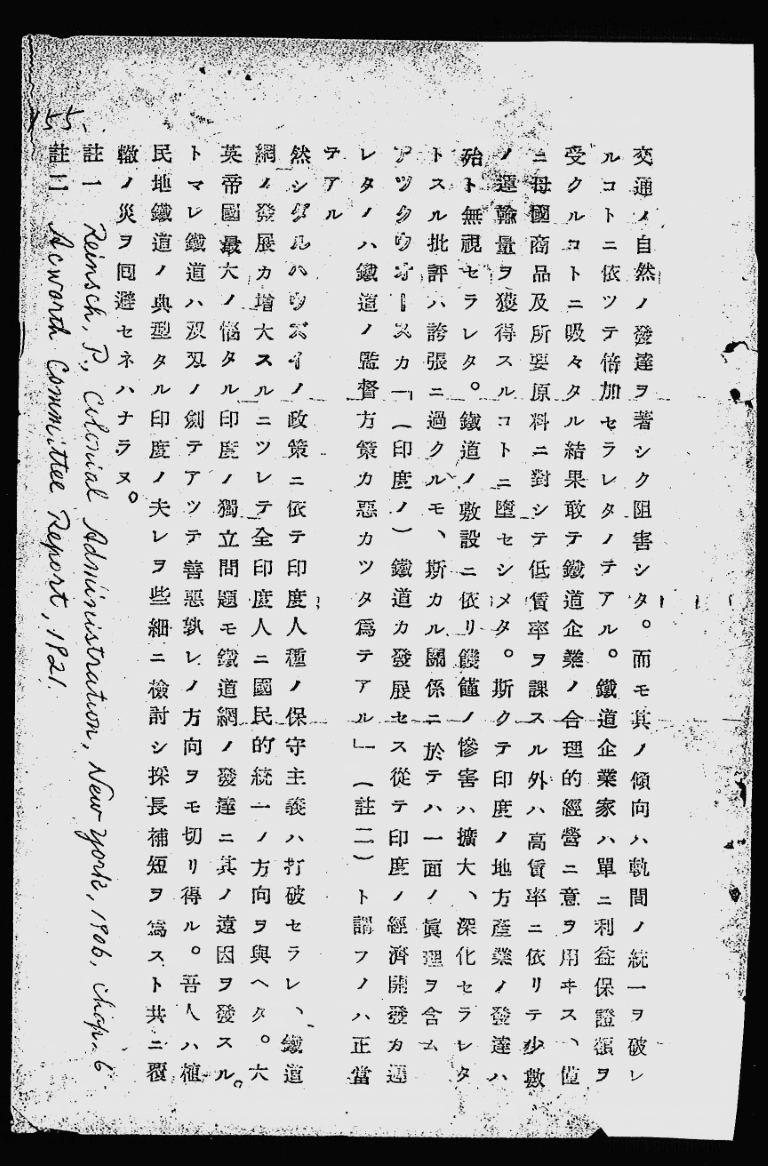 交通ノ自然ノ發達ヲ著シク阻害シタ。而モ其ノ傾向ハ軌間ノ統一ヲ破レ
ルコトニ依ツテ倍加セラレタノテアル。鐵道企業家ハ單ニ利益保證額ヲ
受クルコトニ吸々タル結果敢テ鐵道企業ノ合理的經營ニ意ヲ用ヰス、僅
ニ母國商品及所要原料ニ對シテ低賃率ヲ課スル外ハ高賃率ニ依リテ少數
ノ運輸量ヲ獲得スルコトニ墮セシメタ。斯クテ印度ノ地方產業ノ發達ハ
殆ト無視セラレタ。鐵道ノ敷設ニ依リ饑饉ノ慘害ハ擴大、深化セラレタ
トスル批評ハ誇張ニ過クルモ、斯カル關係ニ於テハ一面ノ眞理ヲ含ム
アツクウオースカ「（印度ノ）鐵道カ發展セス從テ印度ノ經濟開發カ遲
レタノハ鐵道ノ監督方策カ惡カツタ爲テアル」（註二）ト謂フノハ正當
テアル
然シダルハウズイノ政策ニ依テ印度人種ノ保守主義ハ打破セラレ、鐵道
網ノ發展カ增大スルニツレテ全印度人ニ國民的統一ノ方向ヲ與ヘタ。大
英帝國最大ノ惱タル印度ノ獨立問題モ鐵道網ノ發達ニ其ノ遠因ヲ發スル。
トマレ鐵道ハ双刄ノ劍テアツテ善惡孰レノ方向ヲモ切リ得ル。吾人ハ植
民地鐵道ノ典型タル印度ノ夫レヲ些細ニ檢討シ採長補短ヲ爲スト共ニ覆
轍ノ災ヲ囘避セネハナラヌ。
註一 Reinsch, P., Colonial Administration, New York, 1906, Chap. 6
註二 Acworth Committee Report, 1921.
155.